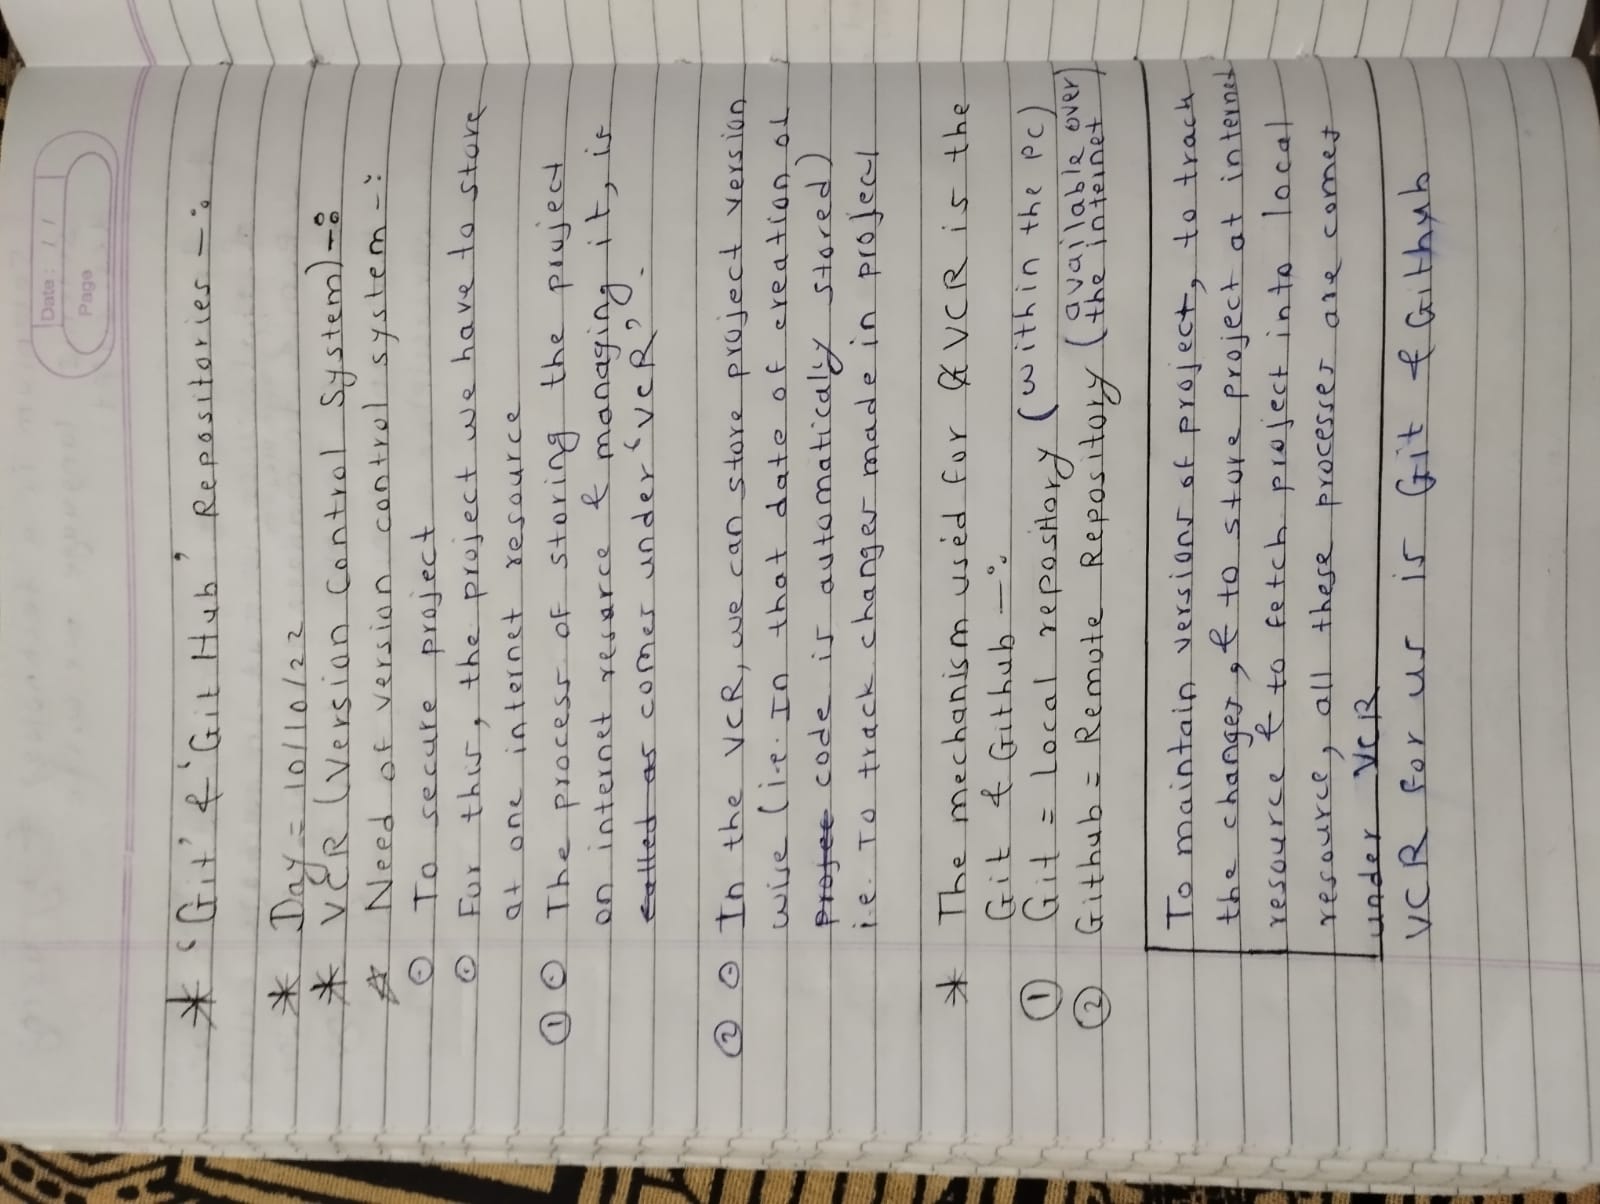 Date : / /
Page
* 'Git' & 'Git Hub' Repositories -:
* Day = 10/10/22
* VCR (Version Control System) -:
* Need of version control system -:
⊙ To secure project
⊙ For this, the project we have to store
at one internet resource
① ⊙ The process of storing the project
on internet resarce & managing it, is
called as comes under 'VCR'.
② ⊙ In the VCR, we can store project version
wise (i.e. In that date of creation of
projec code is automatically stored)
i.e. To track changes made in project
* The mechanism used for VCR is the
Git & Github -:
① Git = Local repository (within the PC)
② Github = Remote Repository (available over
the internet)
To maintain versions of project, to track
the changes, & to store project at internet
resource & to fetch project into local
resource, all these processes are comes
under VCR
VCR for us is Git & Github